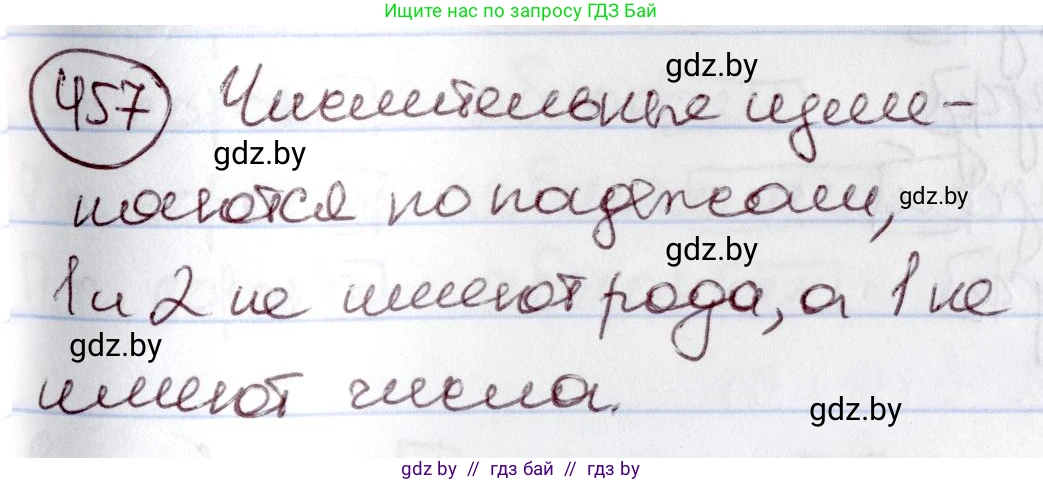 Ищите нас по запросу ГДЗ Бай
457 Числительные изме- gdz.by
gdz.by
няются по падежам, gdz.by
gdz.by
1 и 2 не имеют рода, а 1 не
gdz.by
имеют числа. gdz.by
gdz by // гдз бай // гдз by